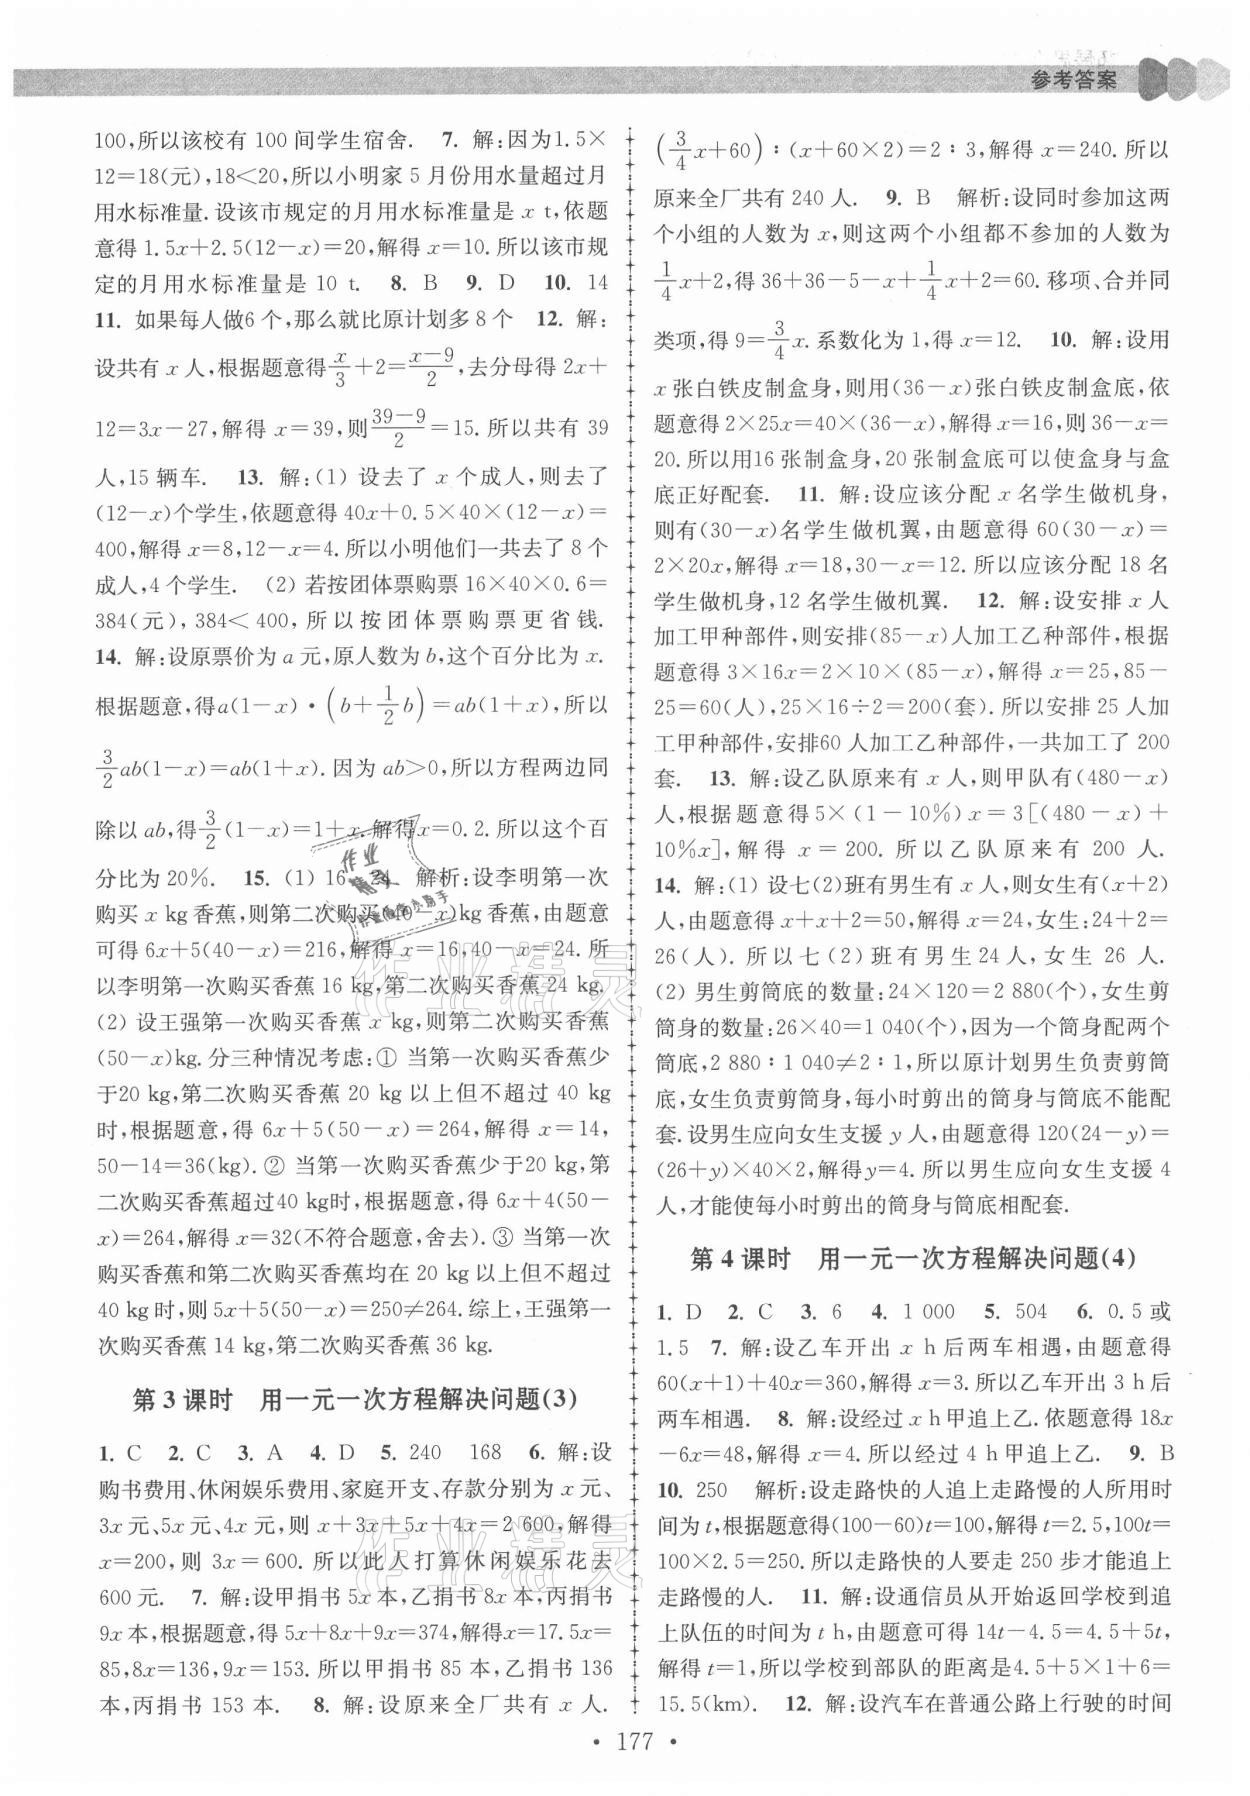 参考答案
100,所以该校有 100 间学生宿舍. 7. 解:因为1.5×
12=18(元),18<20,所以小明家 5 月份用水量超过月
用水标准量.设该市规定的月用水标准量是 x t,依题
意得 1.5x+2.5(12-x)=20,解得 x=10.所以该市规
定的月用水标准量是 10 t. 8. B 9. D 10. 14
11. 如果每人做6 个,那么就比原计划多 8 个 12. 解:
设共有 x 人,根据题意得x/3+2=(x-9)/2,去分母得 2x+
12=3x-27,解得 x=39,则(39-9)/2=15.所以共有 39
人,15 辆车. 13. 解:(1) 设去了 x 个成人,则去了
(12-x)个学生,依题意得 40x+0.5×40×(12-x)=
400,解得 x=8,12-x=4.所以小明他们一共去了 8 个
成人,4 个学生. (2) 若按团体票购票 16×40×0.6=
384(元),384<400,所以按团体票购票更省钱.
14. 解:设原票价为 a 元,原人数为 b,这个百分比为 x.
根据题意,得a(1-x)·(b+1/2b)=ab(1+x),所以
3/2ab(1-x)=ab(1+x).因为 ab>0,所以方程两边同
除以 ab,得3/2(1-x)=1+x.解得x=0.2.所以这个百
分比为 20%. 15. (1) 16 24 解析:设李明第一次
购买 x kg香蕉,则第二次购买(40-x)kg香蕉,由题意
可得 6x+5(40-x)=216,解得 x=16,40-x=24.所
以李明第一次购买香蕉 16 kg,第二次购买香蕉 24 kg.
(2) 设王强第一次购买香蕉 x kg,则第二次购买香蕉
(50-x)kg.分三种情况考虑:① 当第一次购买香蕉少
于20 kg,第二次购买香蕉 20 kg 以上但不超过 40 kg
时,根据题意,得 6x+5(50-x)=264,解得 x=14,
50-14=36(kg).② 当第一次购买香蕉少于20 kg,第
二次购买香蕉超过40 kg时,根据题意,得 6x+4(50-
x)=264,解得 x=32(不符合题意,舍去).③ 当第一次
购买香蕉和第二次购买香蕉均在 20 kg 以上但不超过
40 kg时,则 5x+5(50-x)=250≠264.综上,王强第一
次购买香蕉 14 kg,第二次购买香蕉 36 kg.
第 3 课时 用一元一次方程解决问题(3)
1. C 2. C 3. A 4. D 5. 240 168 6. 解:设
购书费用、休闲娱乐费用、家庭开支、存款分别为 x 元、
3x元、5x元、4x 元,则 x+3x+5x+4x=2 600,解得
x=200,则 3x=600.所以此人打算休闲娱乐花去
600 元. 7. 解:设甲捐书 5x 本,乙捐书 8x 本,丙捐书
9x 本,根据题意,得 5x+8x+9x=374,解得x=17.5x=
85,8x=136,9x=153.所以甲捐书 85 本,乙捐书 136
本,丙捐书 153 本. 8. 解:设原来全厂共有 x 人.
(3/4x+60):(x+60×2)=2:3,解得 x=240.所以
原来全厂共有 240 人. 9. B 解析:设同时参加这两
个小组的人数为 x,则这两个小组都不参加的人数为
1/4x+2,得 36+36-5-x+1/4x+2=60.移项、合并同
类项,得 9=3/4x.系数化为 1,得 x=12. 10. 解:设用
x 张白铁皮制盒身,则用(36-x)张白铁皮制盒底,依
题意得 2×25x=40×(36-x),解得 x=16,则 36-x=
20.所以用16 张制盒身,20 张制盒底可以使盒身与盒
底正好配套. 11. 解:设应该分配 x 名学生做机身,
则有(30-x)名学生做机翼,由题意得 60(30-x)=
2×20x,解得 x=18,30-x=12.所以应该分配 18 名
学生做机身,12 名学生做机翼. 12. 解:设安排 x 人
加工甲种部件,则安排(85-x)人加工乙种部件,根据
题意得 3×16x=2×10×(85-x),解得 x=25,85-
25=60(人),25×16÷2=200(套).所以安排 25 人加
工甲种部件,安排60 人加工乙种部件,一共加工了 200
套. 13. 解:设乙队原来有 x 人,则甲队有(480-x)
人,根据题意得5×(1-10%)x=3[(480-x)+
10%x],解得 x=200.所以乙队原来有 200 人.
14. 解:(1) 设七(2)班有男生有 x 人,则女生有(x+2)
人,由题意得 x+x+2=50,解得 x=24,女生:24+2=
26(人).所以七(2)班有男生24人,女生 26 人.
(2) 男生剪筒底的数量:24×120=2 880(个),女生剪
筒身的数量:26×40=1 040(个),因为一个筒身配两个
筒底,2 880:1 040≠2:1,所以原计划男生负责剪筒
底,女生负责剪筒身,每小时剪出的筒身与筒底不能配
套.设男生应向女生支援 y 人,由题意得 120(24-y)=
(26+y)×40×2,解得y=4.所以男生应向女生支援 4
人,才能使每小时剪出的筒身与筒底相配套.
第 4 课时 用一元一次方程解决问题(4)
1. D 2. C 3. 6 4. 1 000 5. 504 6. 0.5 或
1.5 7. 解:设乙车开出 x h 后两车相遇,由题意得
60(x+1)+40x=360,解得 x=3.所以乙车开出 3 h 后
两车相遇. 8. 解:设经过 x h 甲追上乙.依题意得 18x
-6x=48,解得 x=4.所以经过 4 h 甲追上乙. 9. B
10. 250 解析:设走路快的人追上走路慢的人所用时
间为 t,根据题意得(100-60)t=100,解得 t=2.5,100t=
100×2.5=250.所以走路快的人要走 250 步才能追上
走路慢的人. 11. 解:设通信员从开始返回学校到追
上队伍的时间为 t h,由题意可得 14t-4.5=4.5+5t,
解得 t=1,所以学校到部队的距离是4.5+5×1+6=
15.5(km). 12. 解:设汽车在普通公路上行驶的时间
作业精灵
作业精灵
• 177 •